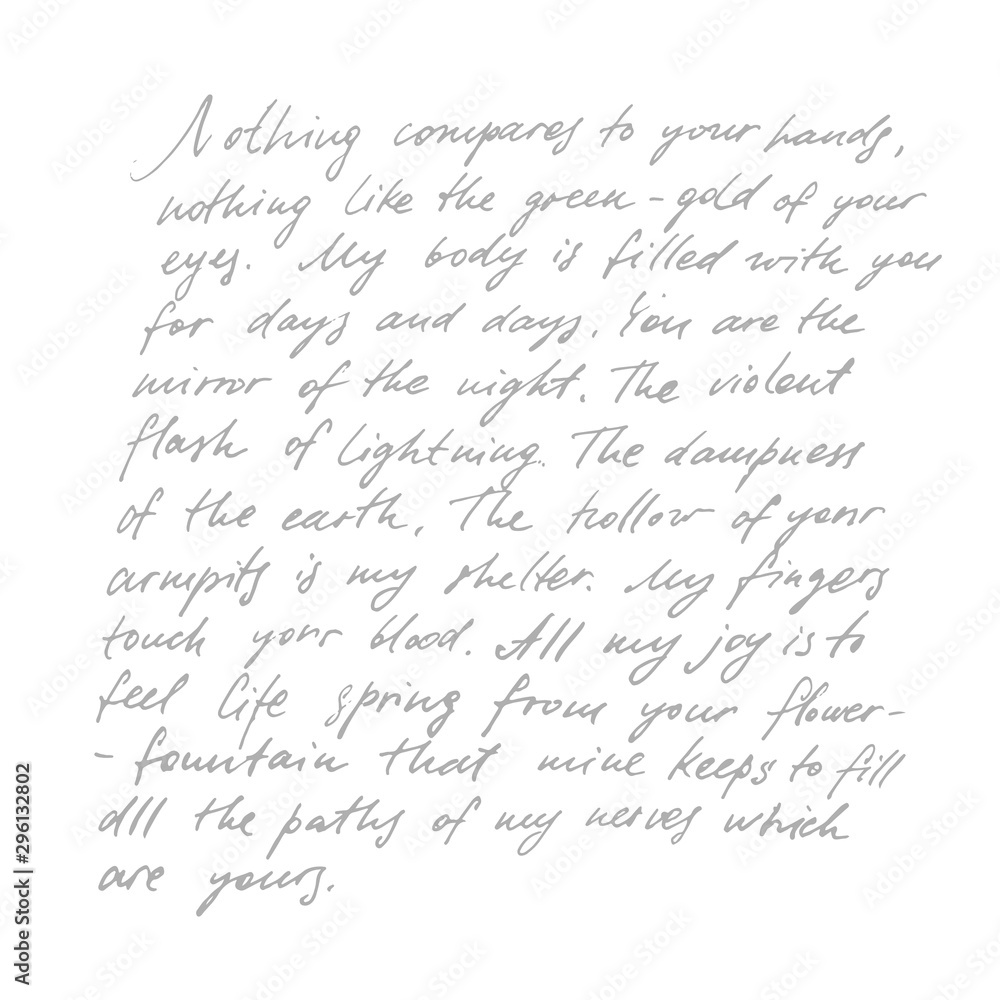 Nothing compares to your hands,
nothing like the green-gold of your
eyes. My body is filled with you
for days and days. You are the
mirror of the night. The violent
flash of lightning. The dampness
of the earth. The hollow of your
armpits is my shelter. My fingers
touch your blood. All my joy is to
feel life spring from your flower-
-fountain that mine keeps to fill
all the paths of my nerves which
are yours.
Adobe Stock | #296132802